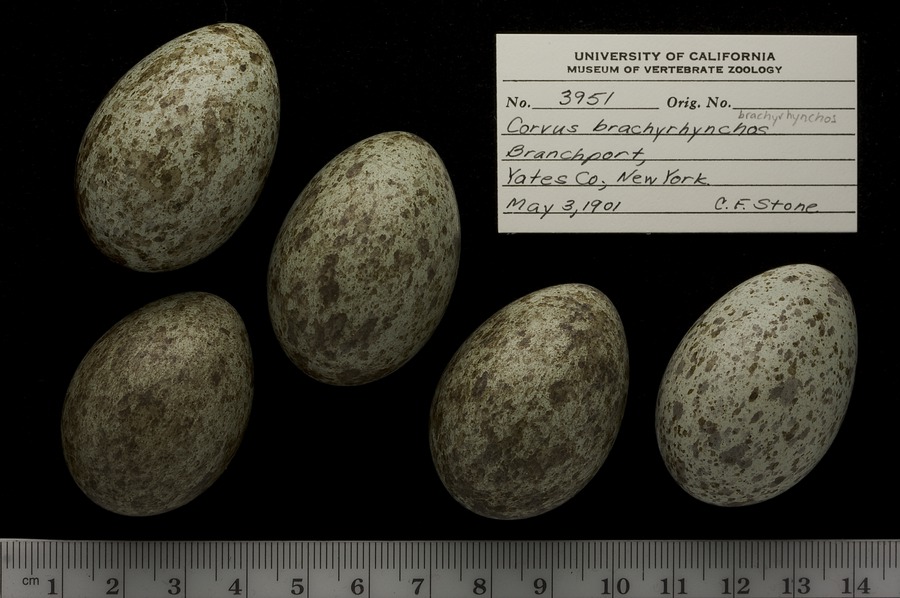 UNIVERSITY OF CALIFORNIA
MUSEUM OF VERTEBRATE ZOOLOGY
No. 3951 Orig. No.
brachyrhynchos
Corvus brachyrhynchos
Branchport,
Yates Co., New York.
May 3, 1901 C. F. Stone.
cm 1 2 3 4 5 6 7 8 9 10 11 12 13 14